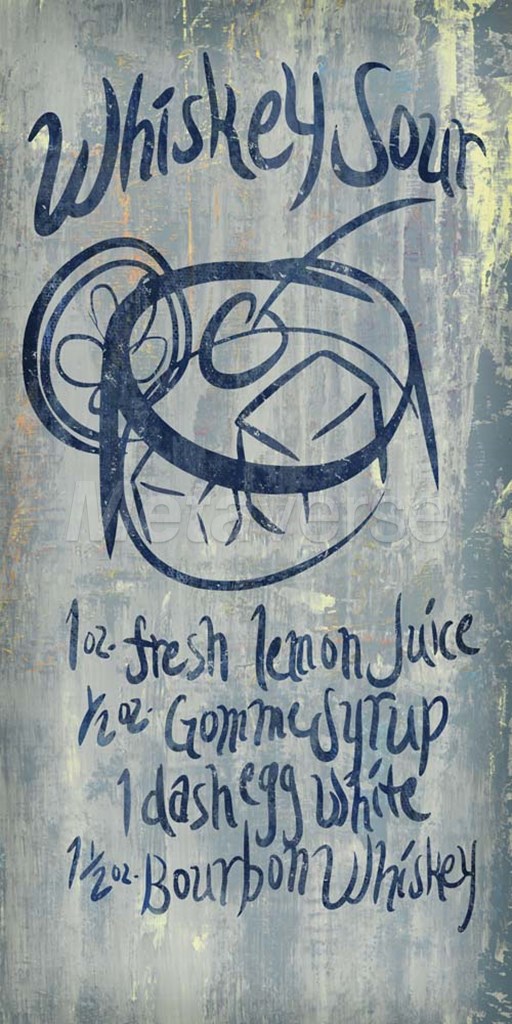 Whiskey Sour
Metaverse
1 oz. fresh lemon Juice
1/2 oz. Gomme Syrup
1 dash egg White
1 1/2 oz. Bourbon Whiskey